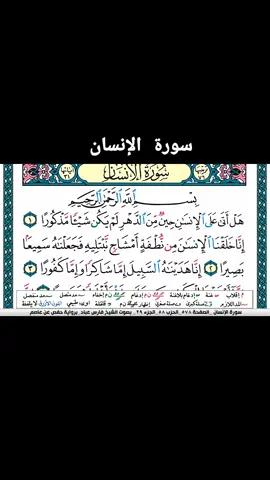 سورة الإنسان
سُورَةُ الإِنسَانِ
بِسْمِ اللَّهِ الرَّحْمَٰنِ الرَّحِيمِ
هَلْ أَتَىٰ عَلَى الْإِنسَٰنِ حِينٌ مِّنَ الدَّهْرِ لَمْ يَكُن شَيْـًٔا مَّذْكُورًا ١
إِنَّا خَلَقْنَا الْإِنسَٰنَ مِن نُّطْفَةٍ أَمْشَاجٍ نَّبْتَلِيهِ فَجَعَلْنَٰهُ سَمِيعًۢا
بَصِيرًا ٢ إِنَّا هَدَيْنَٰهُ السَّبِيلَ إِمَّا شَاكِرًا وَإِمَّا كَفُورًا ٣
سورة الإنسان _الصفحة ٥٧٨ _الحزب ٥٨ _الجزء ٢٩ _ بصوت الشيخ فارس عباد. برواية حفص عن عاصم